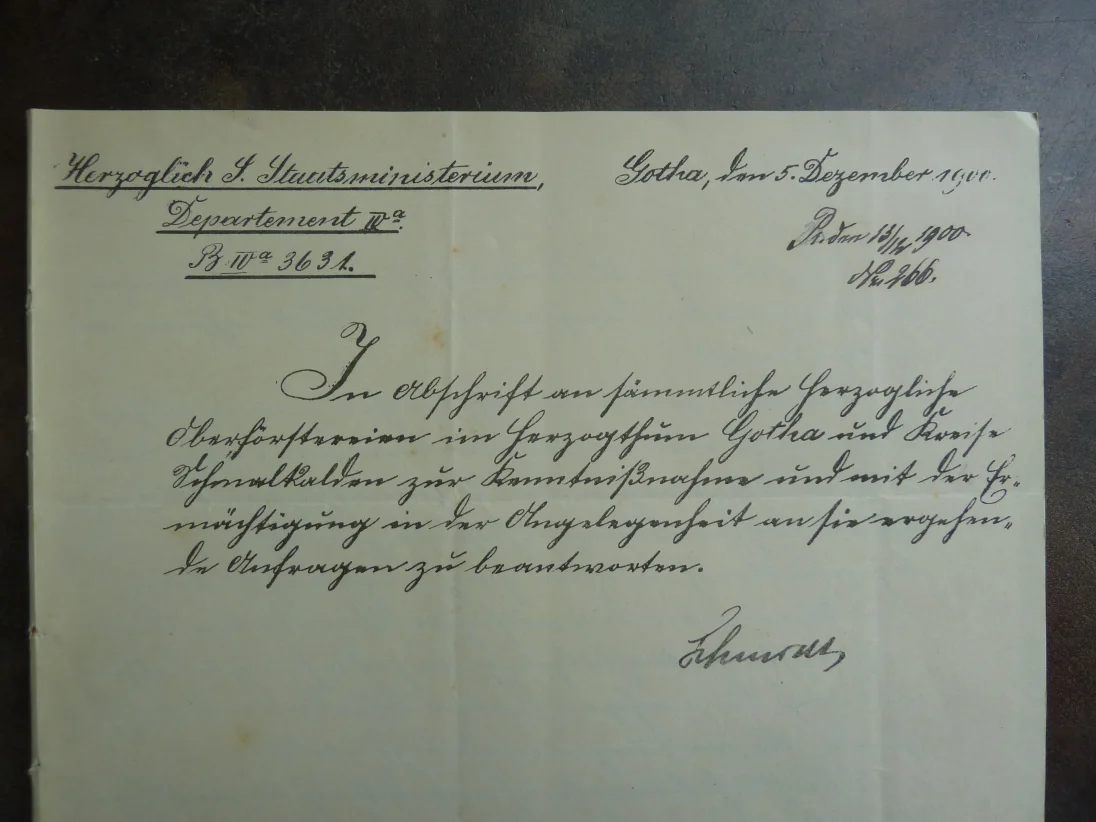 Herzoglich S. Staatsministerium,
Departement IVa.
B IVa 3631.
Gotha, den 5. Dezember 1900.
13/12 1900.
No 266.
In Abschrift an sämmtliche Herzogliche
Oberförstereien im Herzogthum Gotha und Kreise
Schmalkalden zur Kenntnißnahme und mit der Er-
mächtigung in der Angelegenheit an sie ergehen-
de Anfragen zu beantworten.